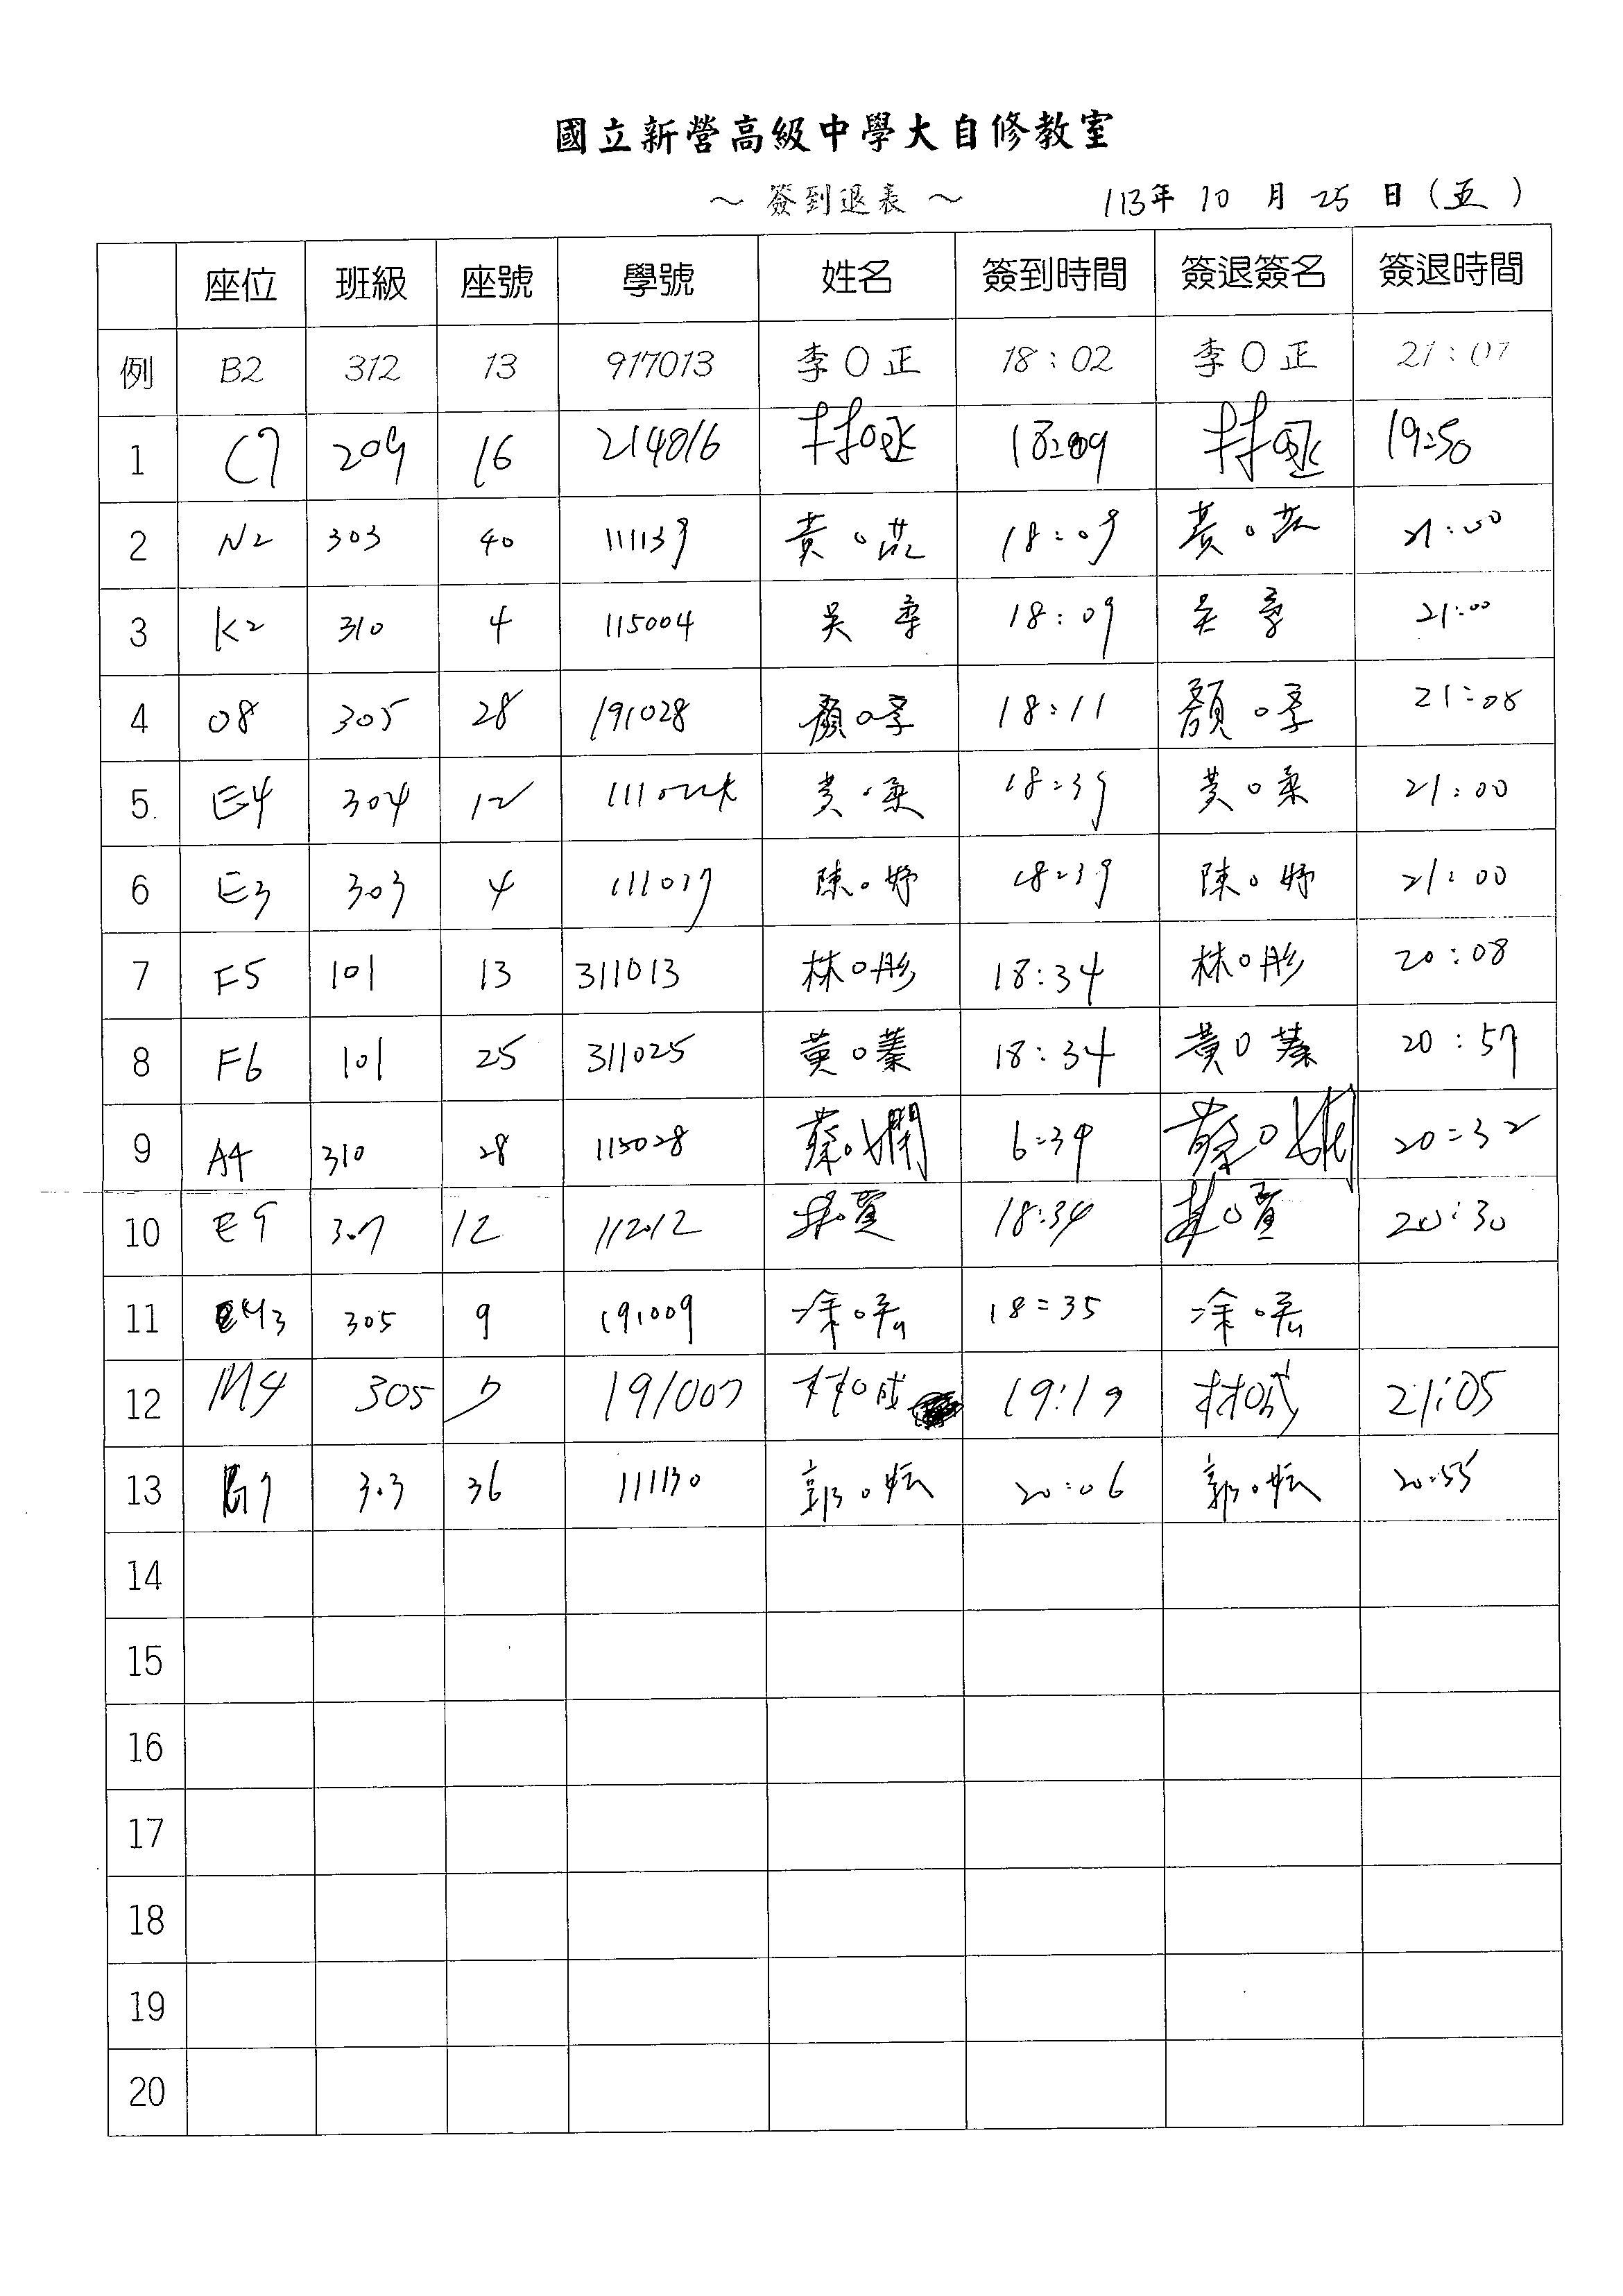 國立新營高級中學大自修教室
～ 簽到退表 ～ 113年 10 月 25 日 (五)
座位 班級 座號 學號 姓名 簽到時間 簽退簽名 簽退時間
例 B2 312 13 917013 李O正 18:02 李O正 21:07
1 C7 209 16 214816 林O丞 18:09 林O丞 19:50
2 N2 303 40 111139 黃O芷 18:09 黃O芷 21:00
3 K2 310 4 115004 吳 18:09 吳 21:00
4 O8 305 28 191028 顏O 18:11 顏O 21:08
5 E4 304 12 黃O柔 18:39 黃O柔 21:00
6 E3 303 4 111037 陳O妤 18:39 陳O妤 21:00
7 F5 101 13 311013 林O彤 18:34 林O彤 20:08
8 F6 101 25 311025 黃O蓁 18:34 黃O蓁 20:57
9 A4 310 28 115028 蔡O嫻 6:34 蔡O嫻 20:32
10 E9 307 12 112012 18:34 林O 20:30
11 M3 305 9 191009 涂O 18:35 涂O
12 M4 305 7 191007 林O成 19:19 林O成 21:05
13 G7 303 36 111130 郭O妘 20:06 郭O妘 20:55
14
15
16
17
18
19
20